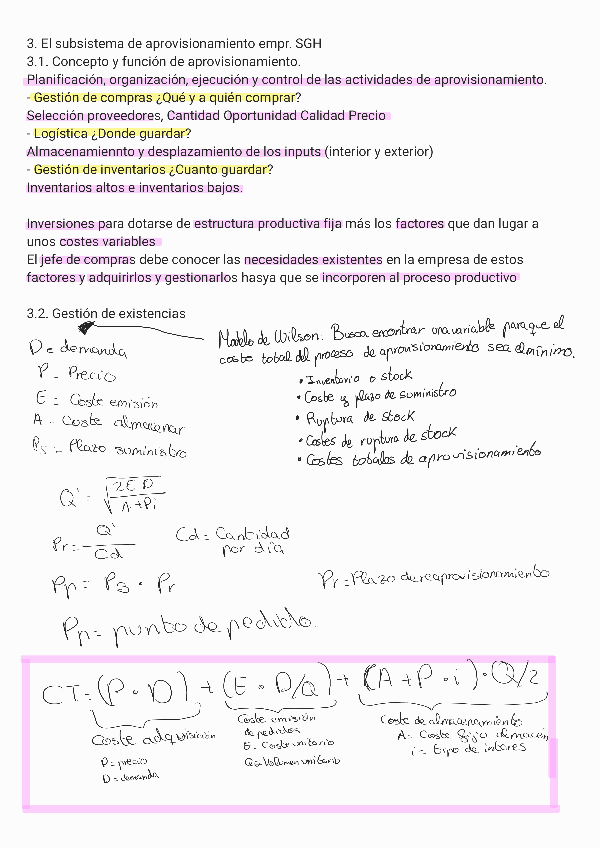 3. El subsistema de aprovisionamiento empr. SGH
3.1. Concepto y función de aprovisionamiento.
Planificación, organización, ejecución y control de las actividades de aprovisionamiento.
- Gestión de compras ¿Qué y a quién comprar?
Selección proveedores, Cantidad Oportunidad Calidad Precio
- Logística ¿Donde guardar?
Almacenamiennto y desplazamiento de los inputs (interior y exterior)
- Gestión de inventarios ¿Cuanto guardar?
Inventarios altos e inventarios bajos.
Inversiones para dotarse de estructura productiva fija más los factores que dan lugar a
unos costes variables
El jefe de compras debe conocer las necesidades existentes en la empresa de estos
factores y adquirirlos y gestionarlos hasya que se incorporen al proceso productivo
3.2. Gestión de existencias
Modelo de Wilson. Busca encontrar una variable para que el
coste total del proceso de aprovisionamiento sea el mínimo.
• Inventario o stock
• Coste y plazo de suministro
• Ruptura de stock
• Costes de ruptura de stock
• Costes totales de aprovisionamiento
D = demanda
P = Precio
E = Coste emisión
A = Coste almacenar
Ps = Plazo suministro
Q' = √2ED / A+Pi
Pr = Q' / Cd
Cd = Cantidad
por día
Pp = Ps · Pr
Pr = Plazo de reaprovisionamiento
Pp = punto de pedido.
CT = (P · D) + (E · D/Q) + (A + P · i) · Q/2
Coste adquisición
P = precio
D = demanda
Coste emisión
de pedidos
E = Coste unitario
Q = Volumen unitario
Coste de almacenamiento
A = Coste fijo almacén
i = tipo de interes